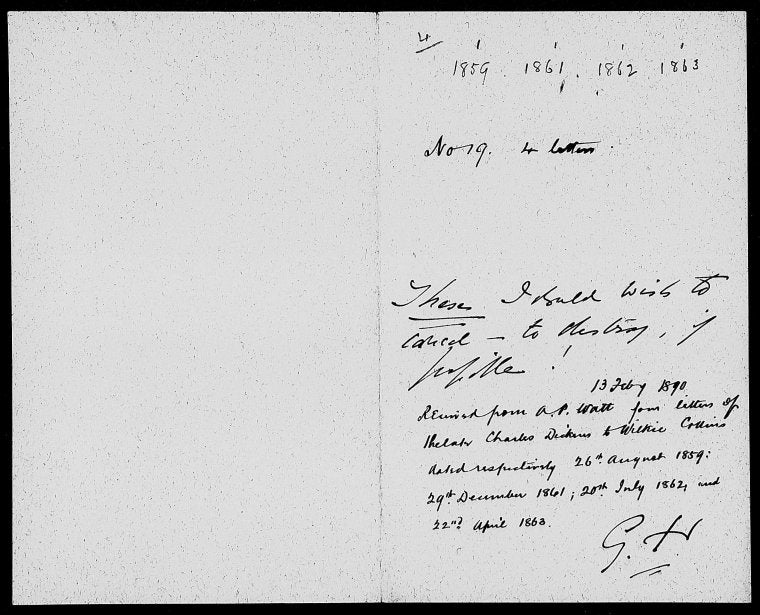 4
1859 1861. 1862 1863
No 19. 4 letters.
These I should wish to
cancel – to destroy, if
possible!
13 Feby 1890
Received from A. P. Watt four letters of
the late Charles Dickens to Wilkie Collins
dated respectively 26th August 1859:
29th December 1861; 20th July 1862, and
22nd April 1863.
G. H.